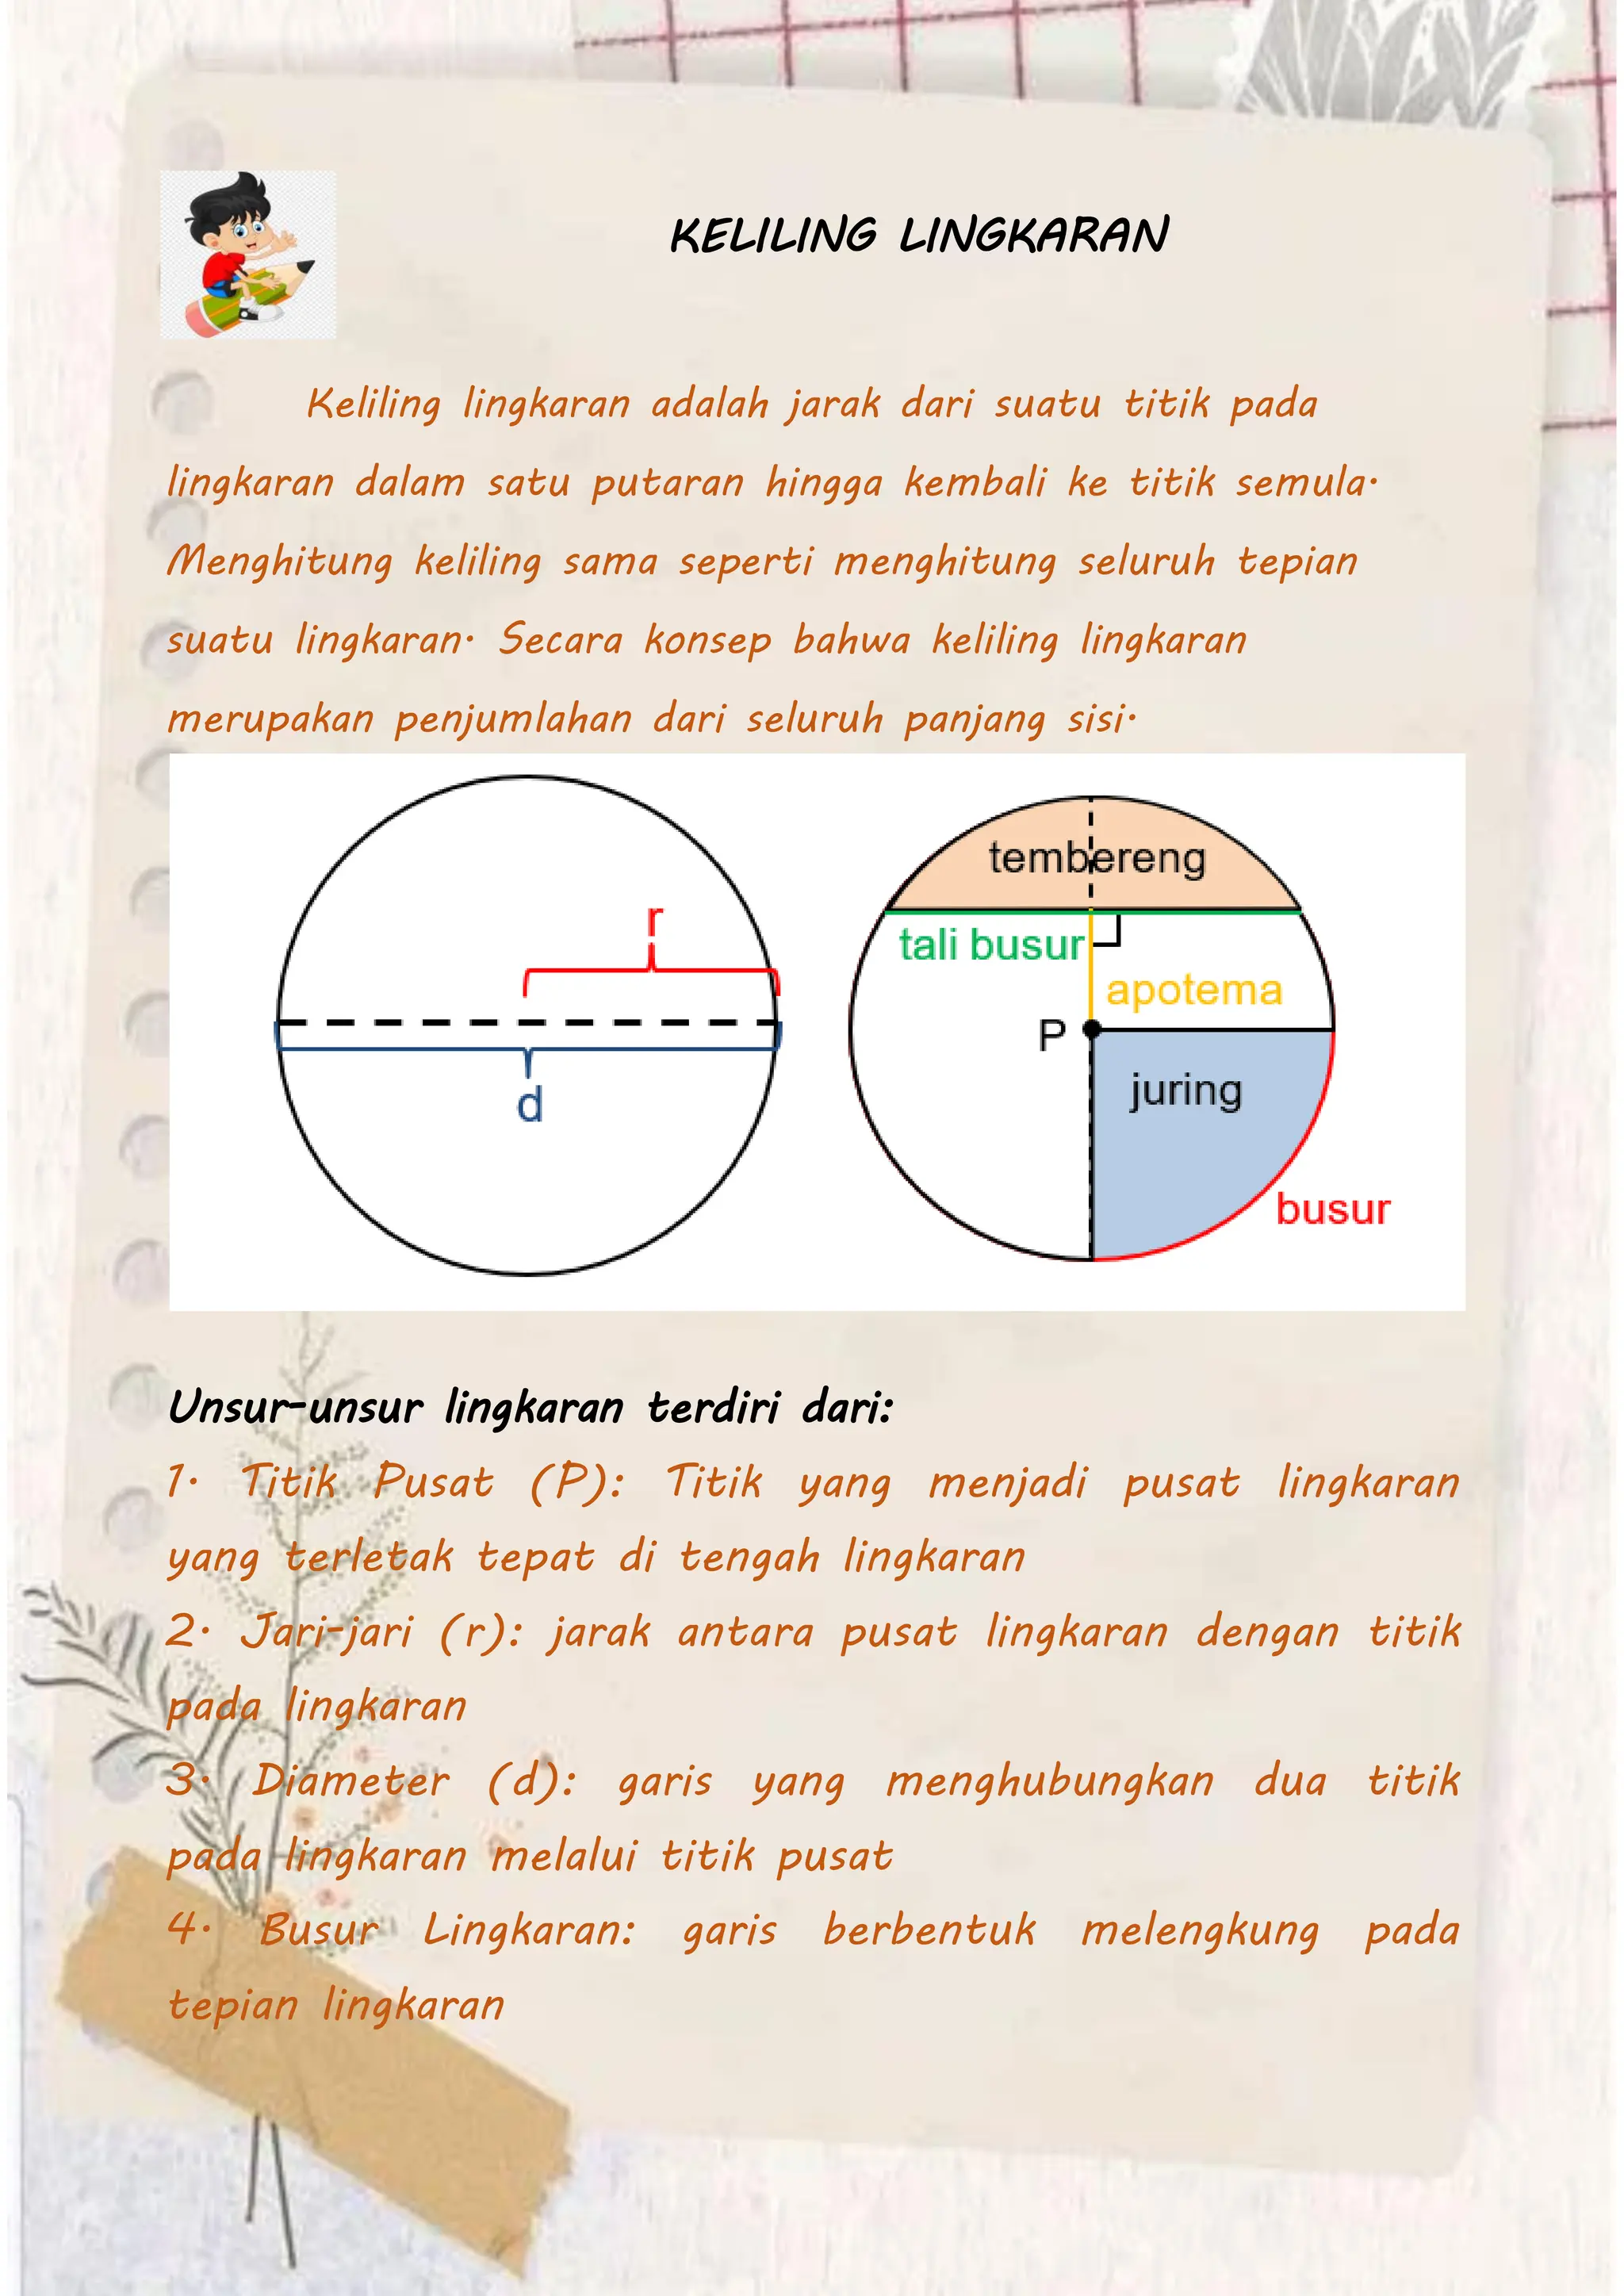 KELILING LINGKARAN
Keliling lingkaran adalah jarak dari suatu titik pada
lingkaran dalam satu putaran hingga kembali ke titik semula.
Menghitung keliling sama seperti menghitung seluruh tepian
suatu lingkaran. Secara konsep bahwa keliling lingkaran
merupakan penjumlahan dari seluruh panjang sisi.
r
d
tembereng
tali busur
apotema
P
juring
busur
Unsur-unsur lingkaran terdiri dari:
1. Titik Pusat (P): Titik yang menjadi pusat lingkaran
yang terletak tepat di tengah lingkaran
2. Jari-jari (r): jarak antara pusat lingkaran dengan titik
pada lingkaran
3. Diameter (d): garis yang menghubungkan dua titik
pada lingkaran melalui titik pusat
4. Busur Lingkaran: garis berbentuk melengkung pada
tepian lingkaran